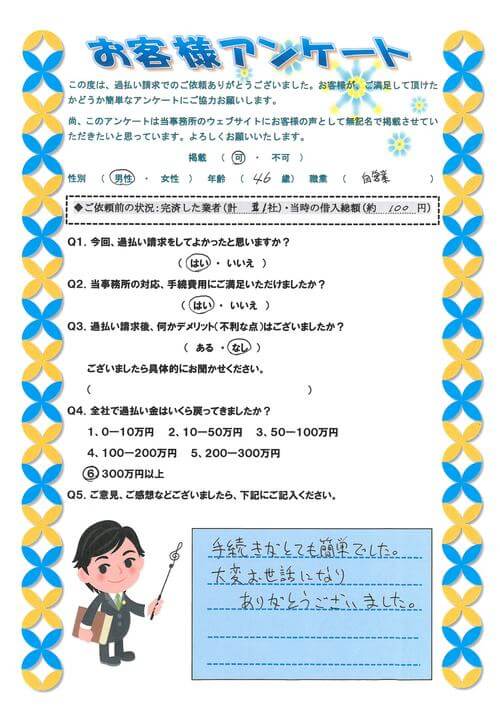 お客様アンケート
この度は、過払い請求でのご依頼ありがとうございました。お客様が、ご満足して頂けた
かどうか簡単なアンケートにご協力お願いします。
尚、このアンケートは当事務所のウェブサイトにお客様の声として無記名で掲載させてい
ただきたいと思っています。よろしくお願いいたします。
掲載 ( 可 ・ 不可 )
性別 ( 男性 ・ 女性 ) 年齢 ( 46 歳) 職業 ( 自営業 )
◆ご依頼前の状況:完済した業者(計 1社)・当時の借入総額(約 100 円)
Q1. 今回、過払い請求をしてよかったと思いますか?
( はい ・ いいえ )
Q2. 当事務所の対応、手続費用にご満足いただけましたか?
( はい ・ いいえ )
Q3. 過払い請求後、何かデメリット(不利な点)はございましたか?
( ある ・ なし )
ございましたら具体的にお聞かせください。
( )
Q4. 全社で過払い金はいくら戻ってきましたか?
1、0ー10万円 2、10ー50万円 3、50ー100万円
4、100ー200万円 5、200ー300万円
⑥ 300万円以上
Q5. ご意見、ご感想などございましたら、下記にご記入ください。
手続きがとても簡単でした。
大変お世話になり
ありがとうございました。